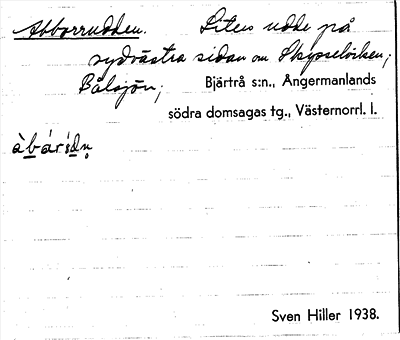 Abborrudden. Liten udde på
sydvästra sidan om Skysselviken;
Bålsjön; Bjärtrå s:n., Ångermanlands
södra domsagas tg., Västernorrl. l.
Sven Hiller 1938.